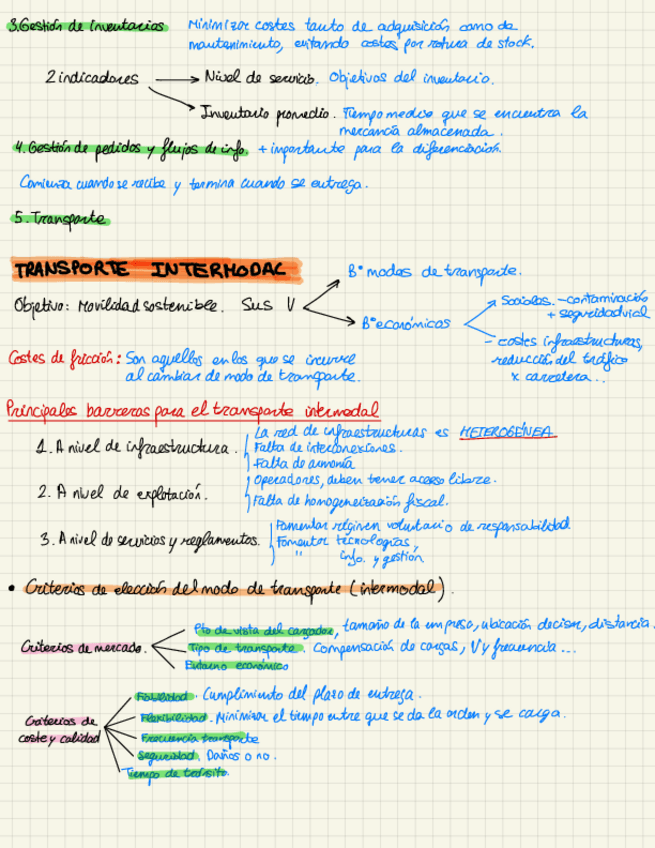 3. Gestión de Inventarios Minimizar costes tanto de adquisición como de
mantenimiento, evitando costes por rotura de stock.
2 indicadores → Nivel de servicio. Objetivos del inventario.
Inventario promedio. Tiempo medio que se encuentra la
mercancía almacenada.
4. Gestión de pedidos y flujos de info. + importante para la diferenciación.
Comienza cuando se recibe y termina cuando se entrega.
5. Transporte
TRANSPORTE INTERMODAL
B° modos de transporte.
Objetivo: Movilidad sostenible. Sus V
B° económicos
Sociales. - contaminación
+ seguridad vial
- costes infraestructuras,
reducción del tráfico
x carretera...
Costes de fricción: Son aquellos en los que se incurre
al cambiar de modo de transporte.
Principales barreras para el transporte intermodal
1. A nivel de infraestructura. La red de infraestructuras es HETEROGÉNEA
Falta de interconexiones.
Falta de armonía
2. A nivel de explotación. Operadores, deben tener acceso libre.
Falta de homogeneización fiscal.
3. A nivel de servicios y reglamentos. Fomentar régimen voluntario de responsabilidad
Fomentar tecnologías,
" info. y gestión
• Criterios de elección del modo de transporte (intermodal).
Criterios de mercado. Pto de vista del cargador, tamaño de la empresa, ubicación decisor, distancia.
Tipo de transporte. Compensación de cargas, V y frecuencia...
Entorno económico
Criterios de coste y calidad
Fiabilidad. Cumplimiento del plazo de entrega.
Flexibilidad. Minimizar el tiempo entre que se da la orden y se carga.
Frecuencia transporte
Seguridad. Daños o no.
Tiempo de tránsito.